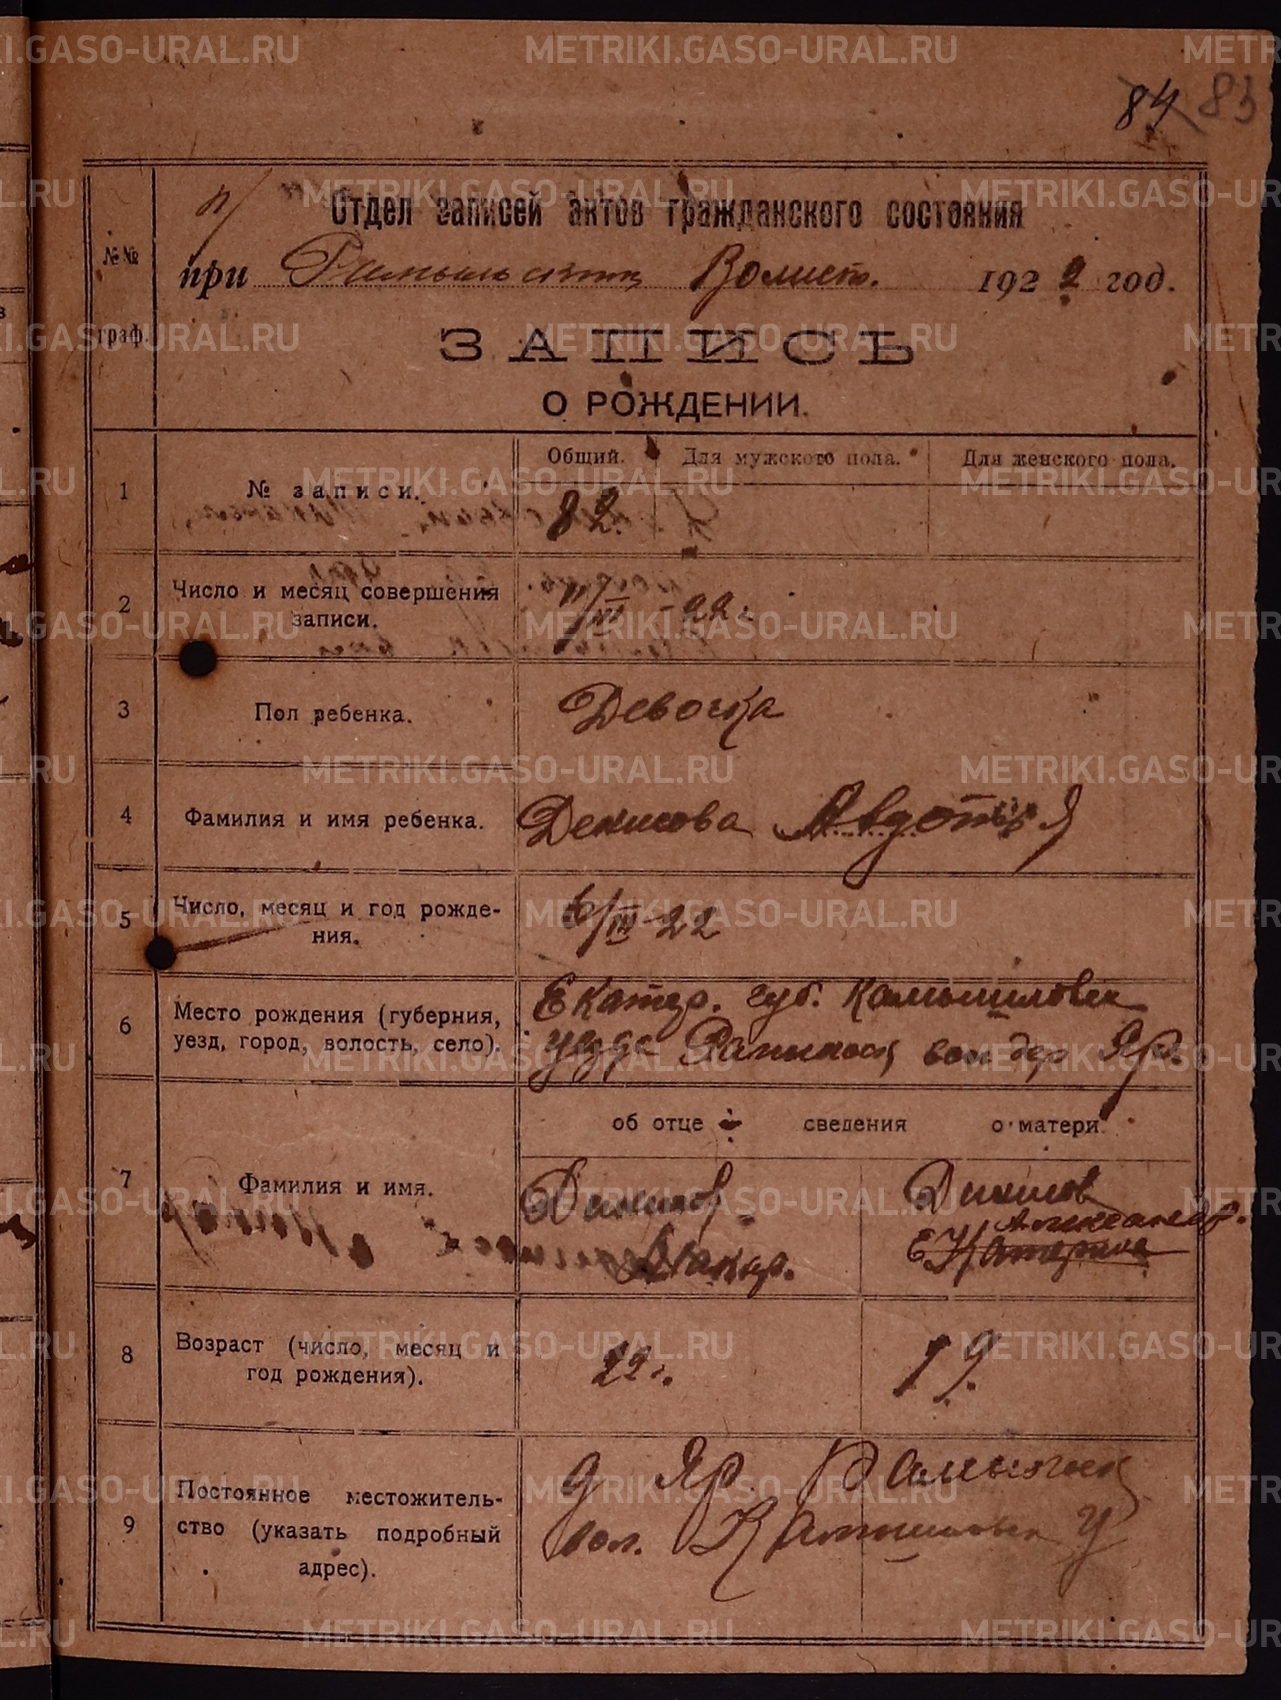 84 83
п/ Отдел записей актов гражданского состояния
№№ граф.
при Волист. 1922 год.
ЗАПИСЬ
О РОЖДЕНИИ.
Общий. Для мужского пола. Для женского пола.
1 № записи. 82.
2 Число и месяц совершения
записи. 11/III-22 г.
3 Пол ребенка. Девочка
4 Фамилия и имя ребенка. Денисова Авдотья
5 Число, месяц и год рожде-
ния. 6/III-22
6 Место рождения (губерния,
уезд, город, волость, село).
Екатер. губ. Камышловск
уезда вол дер Яр.
об отце и сведения о матери
7 Фамилия и имя.
Денисов Макар.
Денисов Александр.
Екатерина
8 Возраст (число, месяц и
год рождения). 22 г. 19.
9 Постоянное местожитель-
ство (указать подробный
адрес).
д Яр.
вол. Камышловск У
METRIKI.GASO-URAL.RU